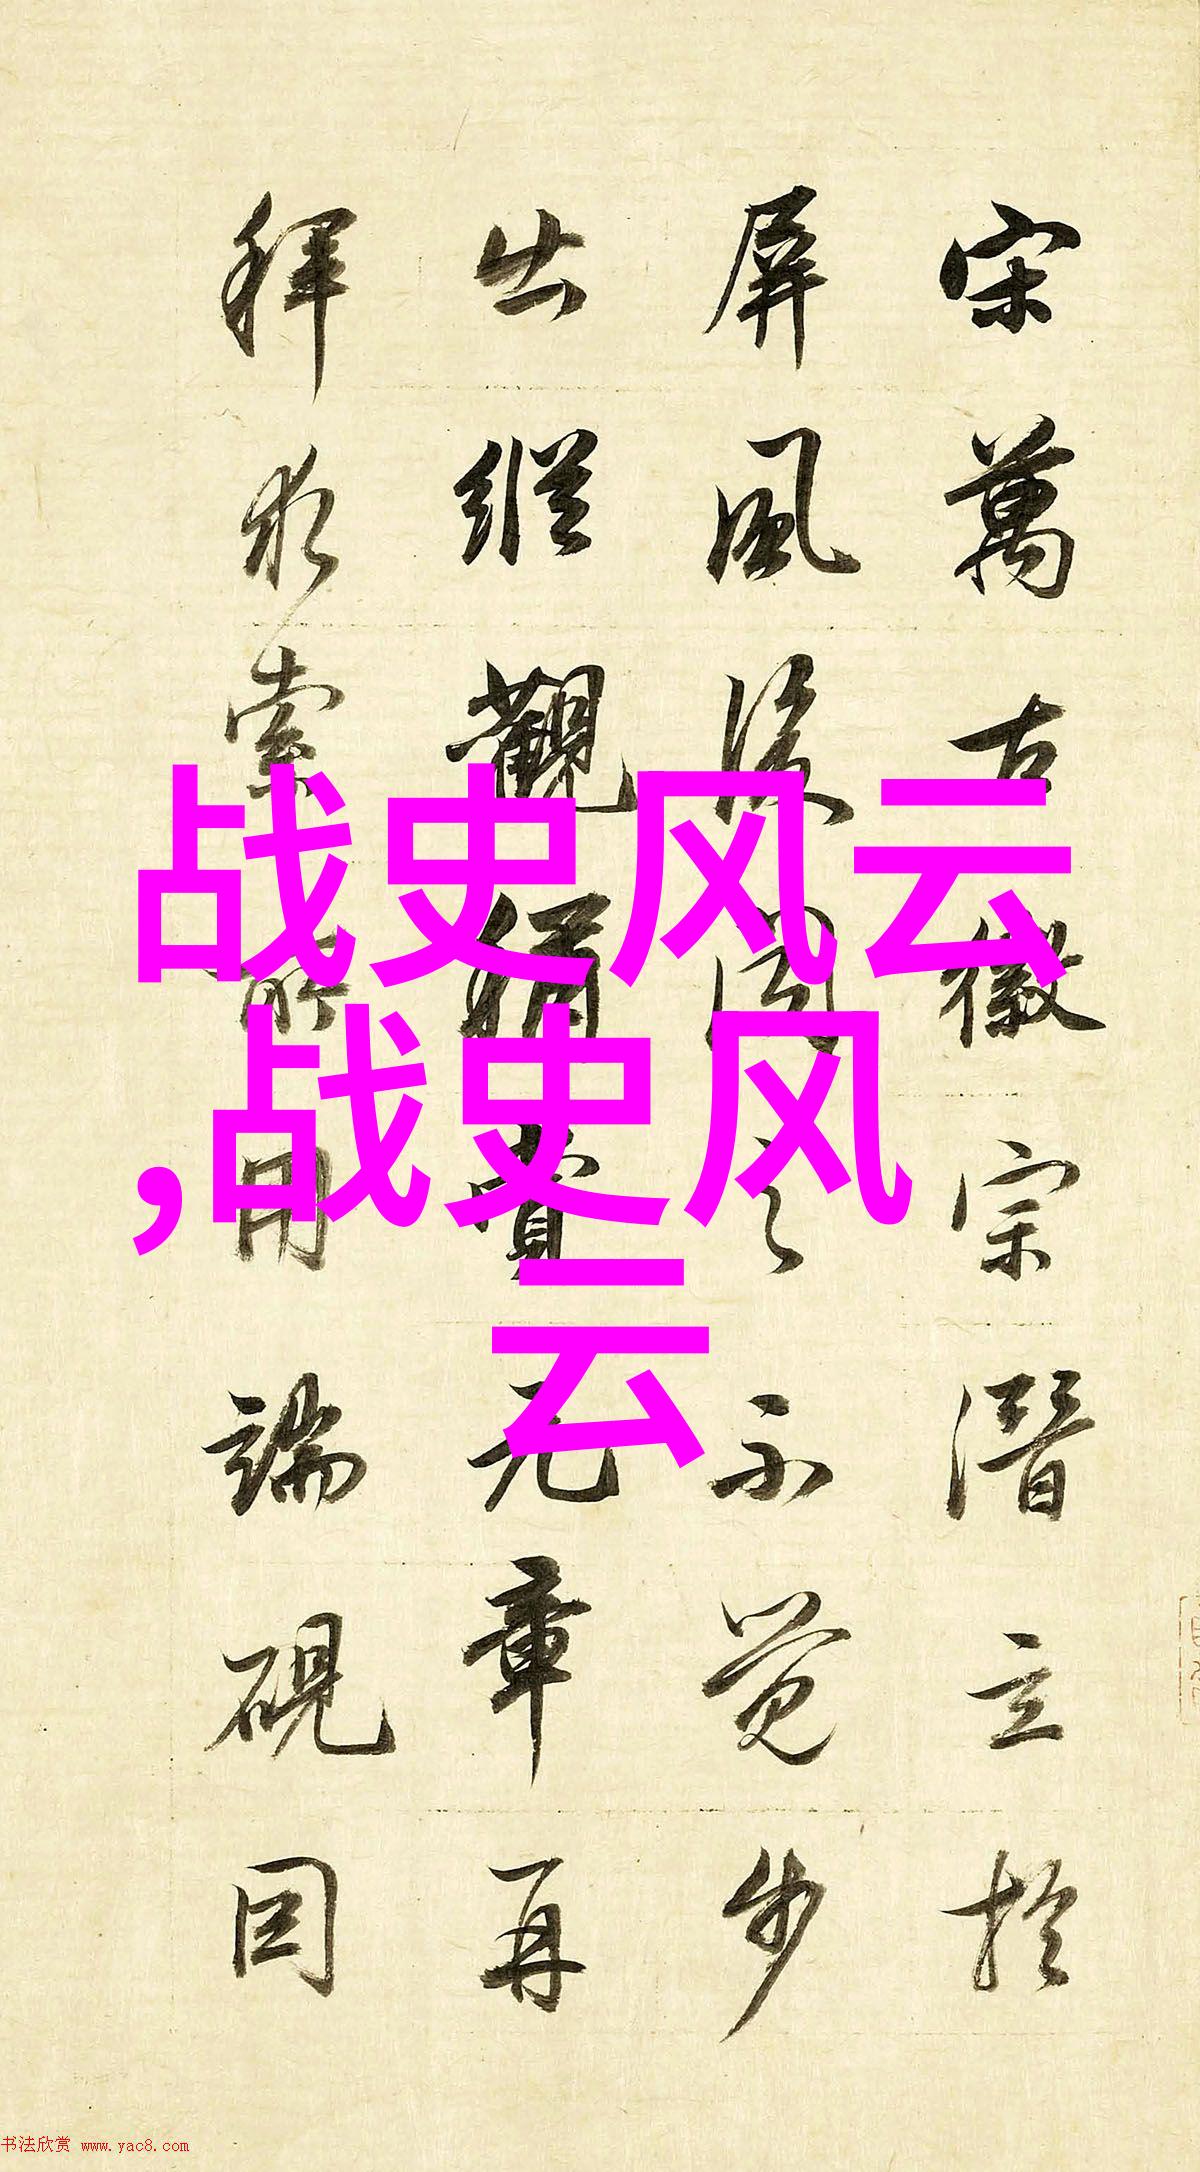 宋萬古徽宗潛立於
屏風後之不覺步
出縱觀稱賞元章再
拜求索所用端硯因
战史风云
,战史风
云
书法欣赏 www.yac8.com